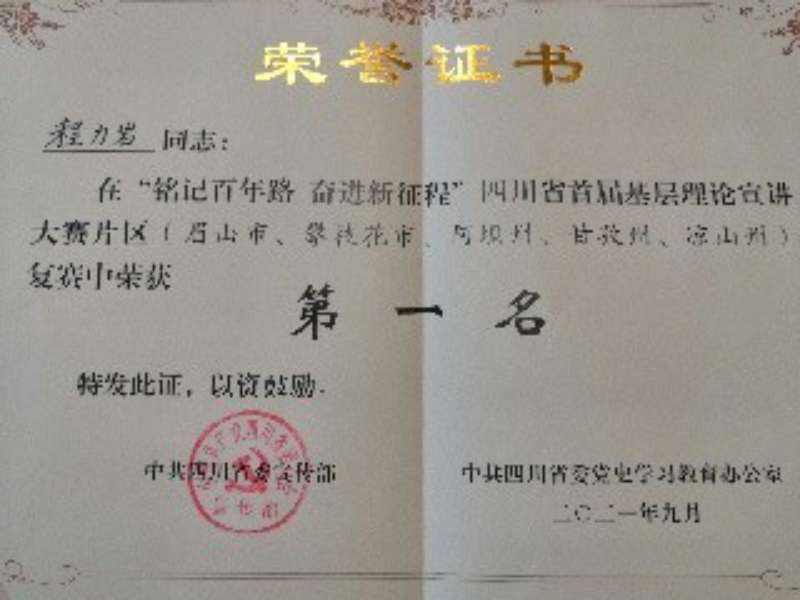 荣誉证书
程力岩 同志：
在“铭记百年路 奋进新征程”四川省首届基层理论宣讲
大赛片区（眉山市、攀枝花市、阿坝州、甘孜州、凉山州）
复赛中荣获
第一名
特发此证，以资鼓励。
中共四川省委宣传部 中共四川省委党史学习教育办公室
二〇二一年九月